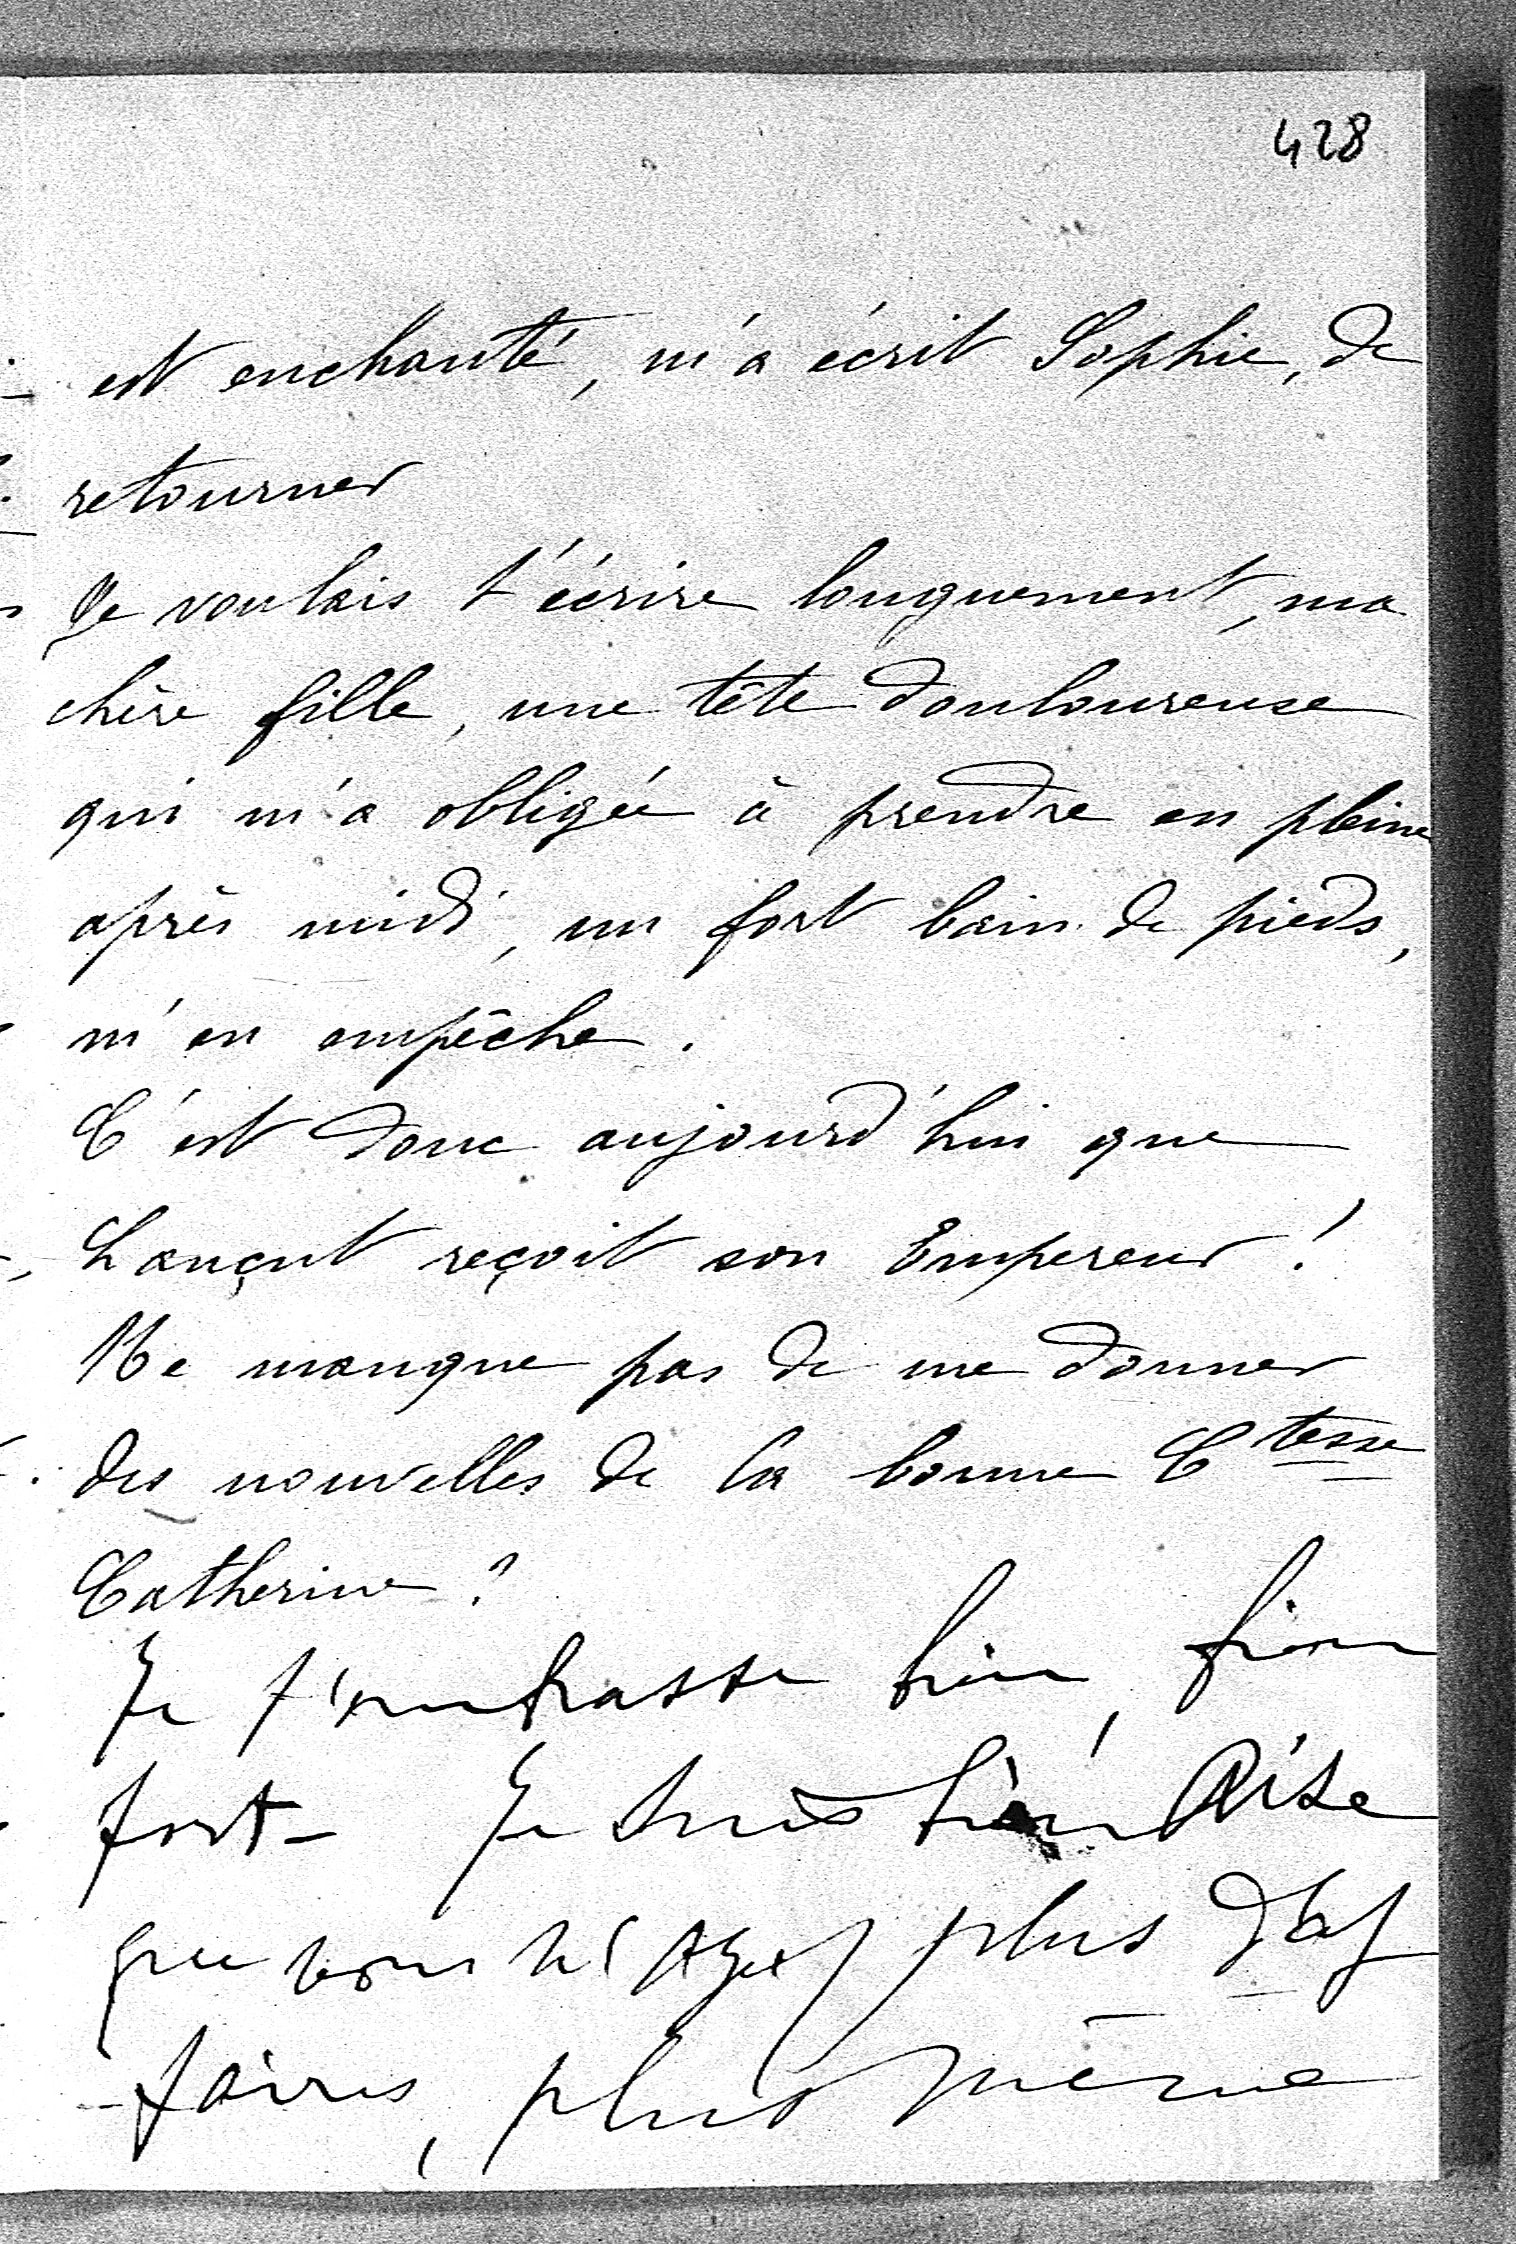 428
est enchanté, m'a écrit Sophie, de
retourner
Je voulais t'écrire longuement, ma
chère fille, une tête douloureuse
qui m'a obligée à prendre en pleine
après midi, un fort bain de pieds,
m'en empêche.
C'est donc aujourd'hui que
Lançut reçoit son Empereur !
Ne manque pas de me donner
des nouvelles de la bonne Ctesse
Catherine ?
Je t'embrasse bien, bien
fort – Je suis bien Aise
que vous n'ayez plus d'af
-faires, plus même